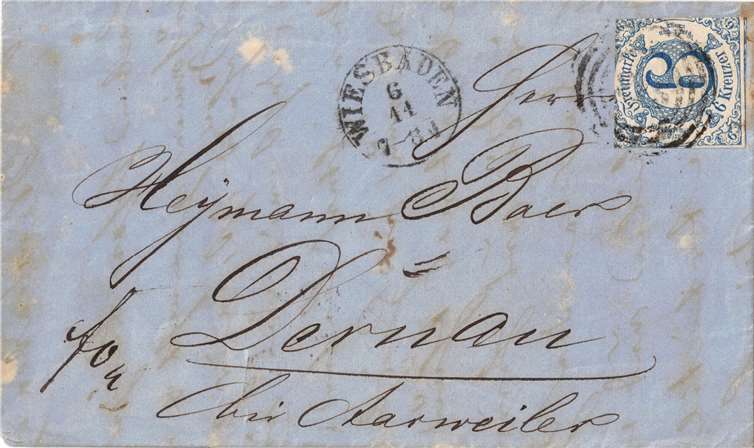 WIESBADEN
6
11
7-8A
6 Kreuzer
6
Herrn
Heymann Baer
Dernau
bei Aarweiler